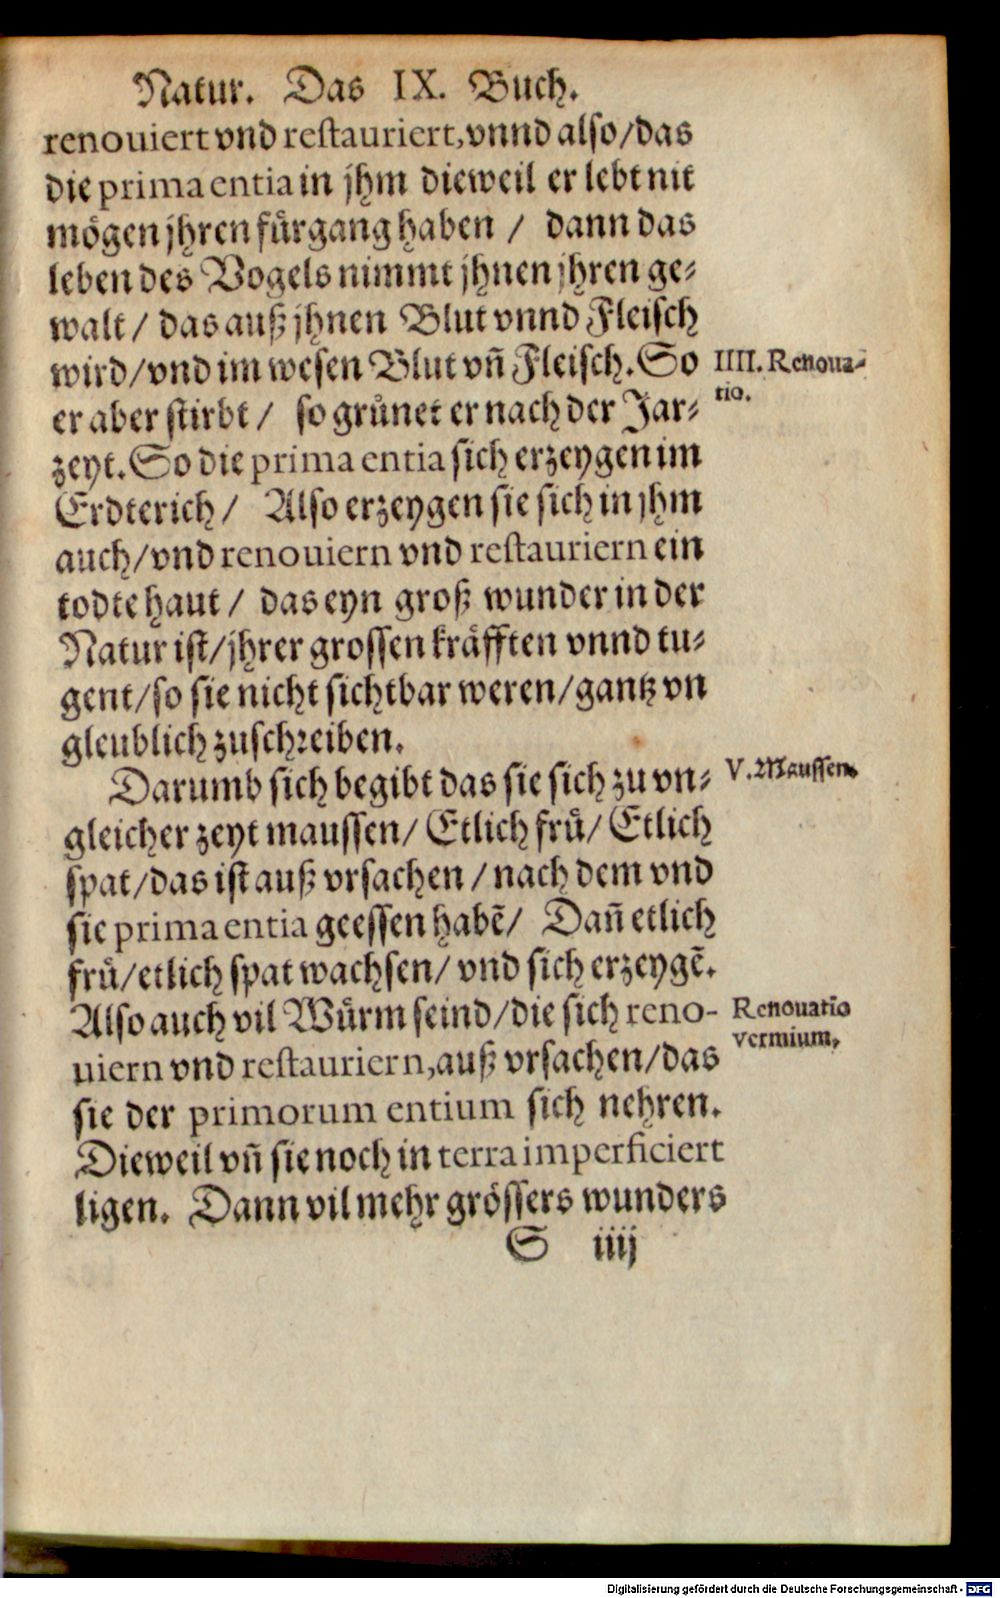 Natur. Das IX. Buch.
renouiert vnd restauriert, vnnd also/das
die prima entia in jhm dieweil er lebt nit
mögen jhren fürgang haben / dann das
leben des Vogels nimmt jhnen jhren ge-
walt / das auß jhnen Blut vnnd Fleisch
wird/vnd im wesen Blut vñ Fleisch. So
IIII. Renoua-
tio.
er aber stirbt / so grünet er nach der Jar-
zeyt. So die prima entia sich erzeygen im
Erdterich / Also erzeygen sie sich in jhm
auch/vnd renouiern vnd restauriern ein
todte haut / das eyn groß wunder in der
Natur ist/jhrer grossen kräfften vnnd tu-
gent/so sie nicht sichtbar weren/gantz vn
gleublich zuschreiben.
Darumb sich begibt das sie sich zu vn-
V. Maussen.
gleicher zeyt maussen/ Etlich frü/ Etlich
spat/das ist auß vrsachen / nach dem vnd
sie prima entia geessen habẽ/ Dañ etlich
frü/etlich spat wachsen/ vnd sich erzeygẽ.
Also auch vil Würm seind/die sich reno-
Renouatio
vermium.
uiern vnd restauriern, auß vrsachen/das
sie der primorum entium sich nehren.
Dieweil vñ sie noch in terra imperficiert
ligen. Dann vil mehr grössers wunders
S iiij
Digitalisierung gefördert durch die Deutsche Forschungsgemeinschaft - DFG